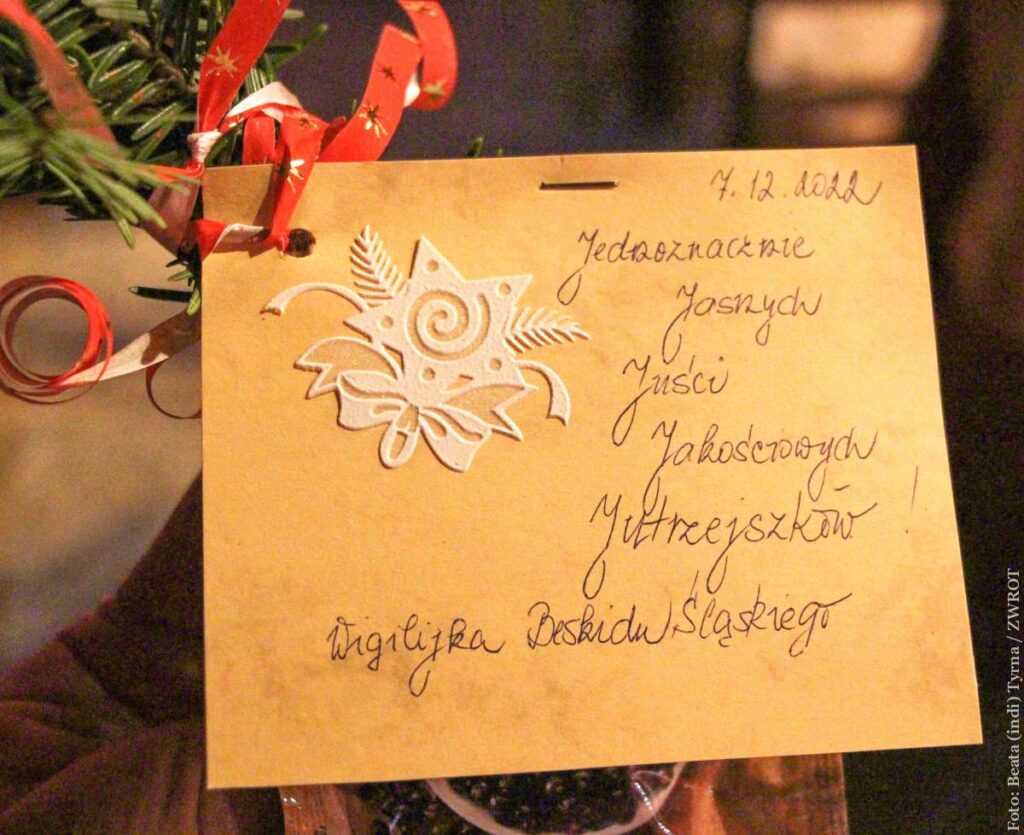 7.12.2022
Jednoznacznie
Jasnych
Juści
Jakościowych
Jutrzejszków!
Wigilijka Beskidu Śląskiego
Foto: Beata (indi) Tyrna / ZWROT